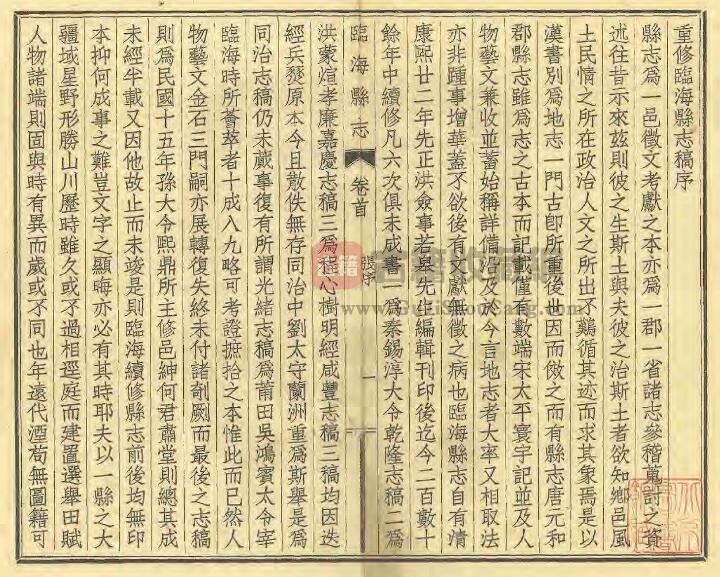 重修臨海縣志稿序
縣志爲一邑徵文考獻之本亦爲一郡一省諸志參稽蒐討之資
述往昔示來茲則彼之生斯土與夫彼之治斯土者欲知鄉邑風
土民情之所在政治人文之所出不囏循其迹而求其象焉是以
漢書別爲地志一門古卽所重後世因而倣之而有縣志唐元和
郡縣志雖爲志之古本而記載僅有數端宋太平寰宇記並及人
物藝文兼收並蓄始稱詳備以及於今言地志者大率又相取法
亦非踵事增華蓋不欲後有文獻無徵之病也臨海縣志自有清
康熙廿二年先正洪僉事若皋先生編輯刊印後迄今二百數十
餘年中續修凡六次俱未成書一爲秦錫淳大令乾隆志稿二爲
臨海縣志 卷首 張序 一
洪蒙煊孝廉嘉慶志稿三爲程心樹明經咸豐志稿三稿均因迭
經兵燹原本今且散佚無存同治中劉太守蘭洲重爲斯舉是爲
同治志稿仍未蕆事復有所謂光緒志稿爲莆田吳鴻賓太令宰
臨海時所薈萃者十成八九略可考證摭拾之本惟此而已然人
物藝文金石三門嗣亦展轉復失終未付諸剞劂而最後之志稿
則爲民國十五年孫大令熙鼎所主修邑紳何君肅堂則總其成
未經半載又因他故止而未竣是則臨海續修縣志前後均無印
本抑何成事之難豈文字之顯晦亦必有其時耶夫以一縣之大
疆域星野形勝山川歷時雖久或不過相逕庭而建置選舉田賦
人物諸端則固與時有異而歲或不同也年遠代湮苟無圖籍可
www.GujiShouCang.com